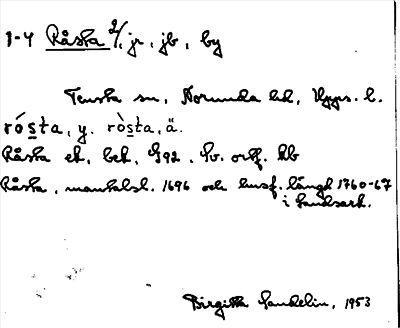 1-4 Råsta 2/, jr, jb, by
Tensta sn, Norunda hd, Upps. l.
rósta, y. ròsta, ä.
Råsta ek. bek. G92. Sv. ortf. hb
Råsta, mantalsl. 1696 och husf. längd 1760-67
i Landsark.
Birgitta Sandelin, 1953